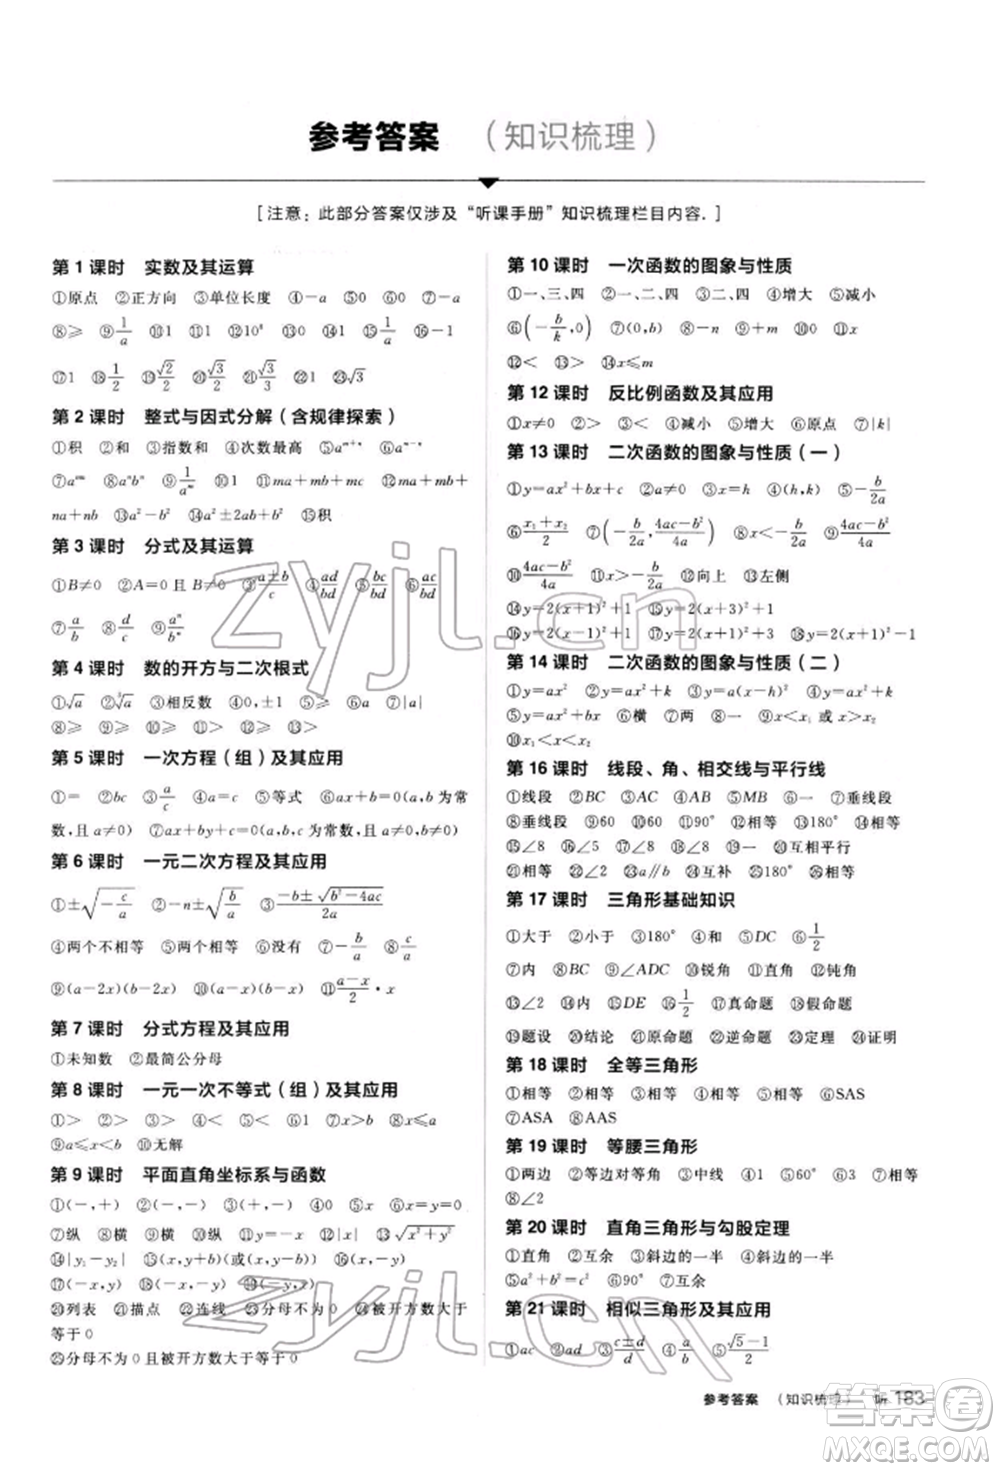 参考答案 （知识梳理）
[注意：此部分答案仅涉及“听课手册”知识梳理栏目内容.]
第 1 课时 实数及其运算
①原点 ②正方向 ③单位长度 ④-a ⑤0 ⑥0 ⑦-a
⑧≥ ⑨1/a ⑩1 ⑪1 ⑫10ⁿ ⑬0 ⑭1 ⑮1/a ⑯-1
⑰1 ⑱1/2 ⑲√2/2 ⑳√3/2 ㉑√3/3 ㉒1 ㉓√3
第 2 课时 整式与因式分解（含规律探索）
①积 ②和 ③指数和 ④次数最高 ⑤aᵐ⁺ⁿ ⑥aᵐ⁻ⁿ
⑦aᵐⁿ ⑧aⁿbⁿ ⑨1/aᵐ ⑩1 ⑪ma+mb+mc ⑫ma+mb+
na+nb ⑬a²-b² ⑭a²±2ab+b² ⑮积
第 3 课时 分式及其运算
①B≠0 ②A=0 且 B≠0 ③(a±b)/c ④ad/bd ⑤bc/bd ⑥ac/bd
⑦a/b ⑧d/c ⑨aⁿ/bⁿ
第 4 课时 数的开方与二次根式
①√a ②∛a ③相反数 ④0,±1 ⑤≥ ⑥a ⑦|a|
⑧≥ ⑨≥ ⑩≥ ⑪> ⑫≥ ⑬>
第 5 课时 一次方程（组）及其应用
①= ②bc ③a/c ④a=c ⑤等式 ⑥ax+b=0(a,b 为常
数,且 a≠0) ⑦ax+by+c=0(a,b,c 为常数,且 a≠0,b≠0)
第 6 课时 一元二次方程及其应用
①±√(-c/a) ②-n±√(b/a) ③(-b±√(b²-4ac))/2a
④两个不相等 ⑤两个相等 ⑥没有 ⑦-b/a ⑧c/a
⑨(a-2x)(b-2x) ⑩(a-x)(b-x) ⑪(a-x)/2·x
第 7 课时 分式方程及其应用
①未知数 ②最简公分母
第 8 课时 一元一次不等式（组）及其应用
①> ②> ③> ④< ⑤< ⑥< ⑦x>b ⑧x≤a
⑨a≤x<b ⑩无解
第 9 课时 平面直角坐标系与函数
①(-,+) ②(-,-) ③(+,-) ④0 ⑤x ⑥x=y=0
⑦纵 ⑧横 ⑨横 ⑩纵 ⑪|y| ⑫|x| ⑬√(x²+y²)
⑭|y₁-y₂| ⑮(x,y+b)(或(x,y-b))
⑰(-x,y) ⑱(-x,-y)
⑳列表 ㉑描点 ㉒连线 ㉓分母不为 0 ㉔被开方数大于
等于 0
㉕分母不为 0 且被开方数大于等于 0
第 10 课时 一次函数的图象与性质
①一、三、四 ②一、二、四 ③二、四 ④增大 ⑤减小
⑥(-b/k,0) ⑦(0,b) ⑧-n ⑨+m ⑩0 ⑪x
⑫< ⑬> ⑭x≤m
第 12 课时 反比例函数及其应用
①x≠0 ②> ③< ④减小 ⑤增大 ⑥原点 ⑦|k|
第 13 课时 二次函数的图象与性质（一）
①y=ax²+bx+c ②a≠0 ③x=h ④(h,k) ⑤-b/2a
⑥(x₁+x₂)/2 ⑦(-b/2a,(4ac-b²)/4a) ⑧x<-b/2a ⑨(4ac-b²)/4a
⑩(4ac-b²)/4a ⑫向上 ⑬左侧
⑭y=2(x+1)²+1 ⑮y=2(x-1)²+1
⑰y=2(x+1)²+3 ⑱y=2(x+1)²-1
第 14 课时 二次函数的图象与性质（二）
①y=ax² ③y=a(x-h)²+k
⑤y=ax²+bx ⑥横 ⑦两 ⑧一 ⑨x<x₁ 或 x>x₂
⑩x₁<x<x₂
第 16 课时 线段、角、相交线与平行线
①线段 ②BC ③AC ④AB ⑤MB ⑥一 ⑦垂线段
⑧垂线段 ⑨60 ⑩60 ⑪90° ⑫相等 ⑬180° ⑭相等
⑮∠8 ⑯∠5 ⑰∠8 ⑱∠8 ⑲一 ⑳互相平行
㉑相等 ㉒相等 ㉓a∥b ㉔互补 ㉕180° ㉖相等
第 17 课时 三角形基础知识
①大于 ②小于 ③180° ④和 ⑤DC ⑥1/2
⑦内 ⑧BC ⑨∠ADC ⑩锐角 ⑪直角 ⑫钝角
⑬∠2 ⑭内 ⑮DE ⑯1/2 ⑰真命题 ⑱假命题
⑲题设 ⑳结论 ㉑原命题 ㉒逆命题 ㉓定理 ㉔证明
第 18 课时 全等三角形
①相等 ②相等 ③相等 ④相等 ⑤相等 ⑥SAS
⑦ASA ⑧AAS
第 19 课时 等腰三角形
①两边 ②等边对等角 ③中线 ④1 ⑤60°
⑧∠2
第 20 课时 直角三角形与勾股定理
①直角 ②互余 ③斜边的一半 ④斜边的一半
⑤a²+b²=c² ⑥90° ⑦互余
第 21 课时 相似三角形及其应用
①ac ②bd ③(c±d)/d ④a/b ⑤(√5-1)/2
参考答案 （知识梳理） 听 183
zyjl.cn
zyjl.cn
答案卷
MXQE.COM